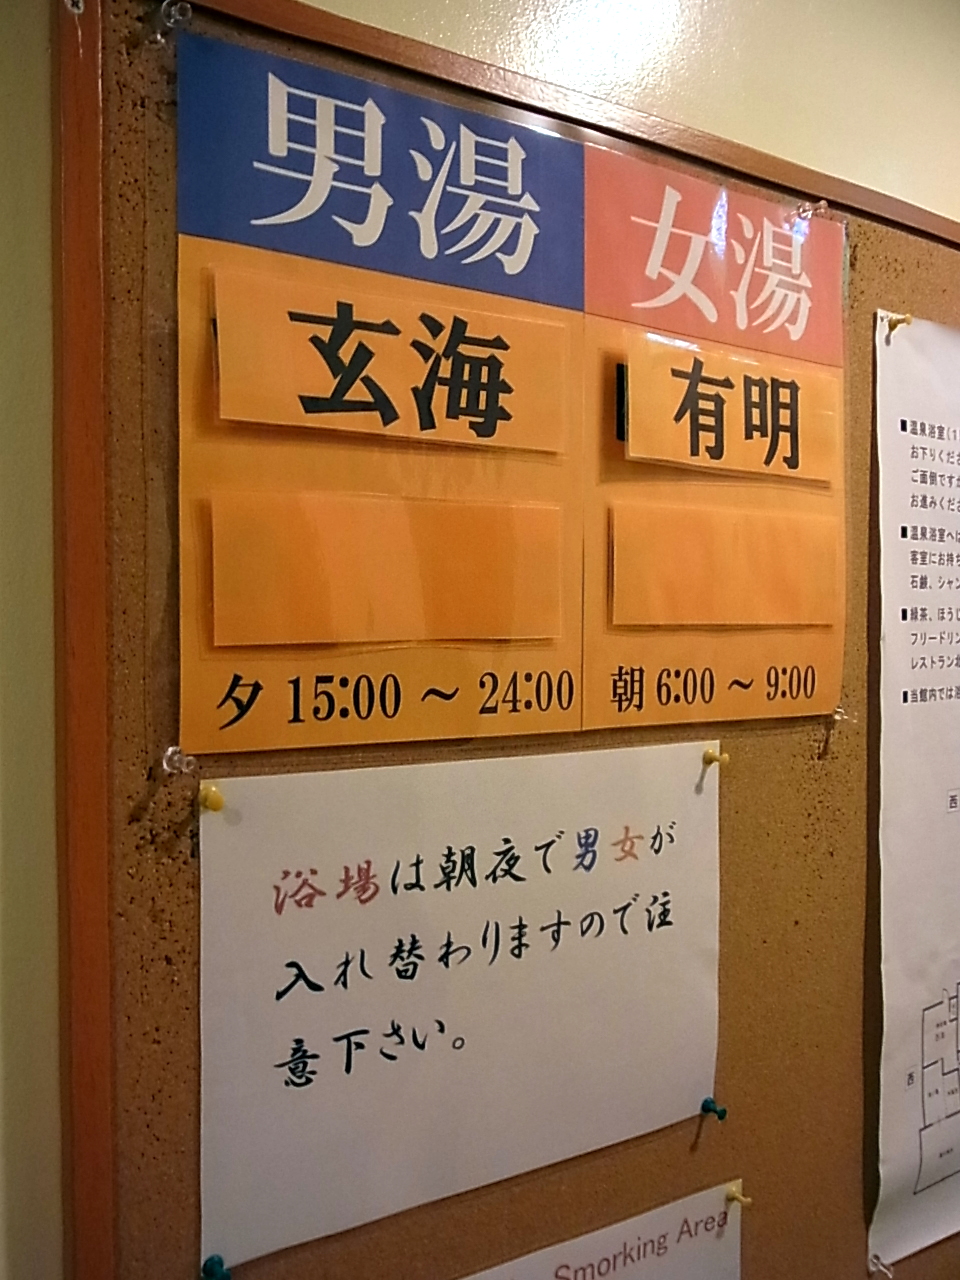 男湯 女湯
玄海 有明
夕 15:00 ～ 24:00 朝 6:00 ～ 9:00
浴場は朝夜で男女が
入れ替わりますので注
意下さい。
Smorking Area
■温泉浴室(1
お下りくださ
ご面倒ですが
お進みくださ
■温泉浴室へは
客室にお持ち
石鹸、シャン
■緑茶、ほうじ
フリードリン
レストラン北
■当館内では浴
西
西